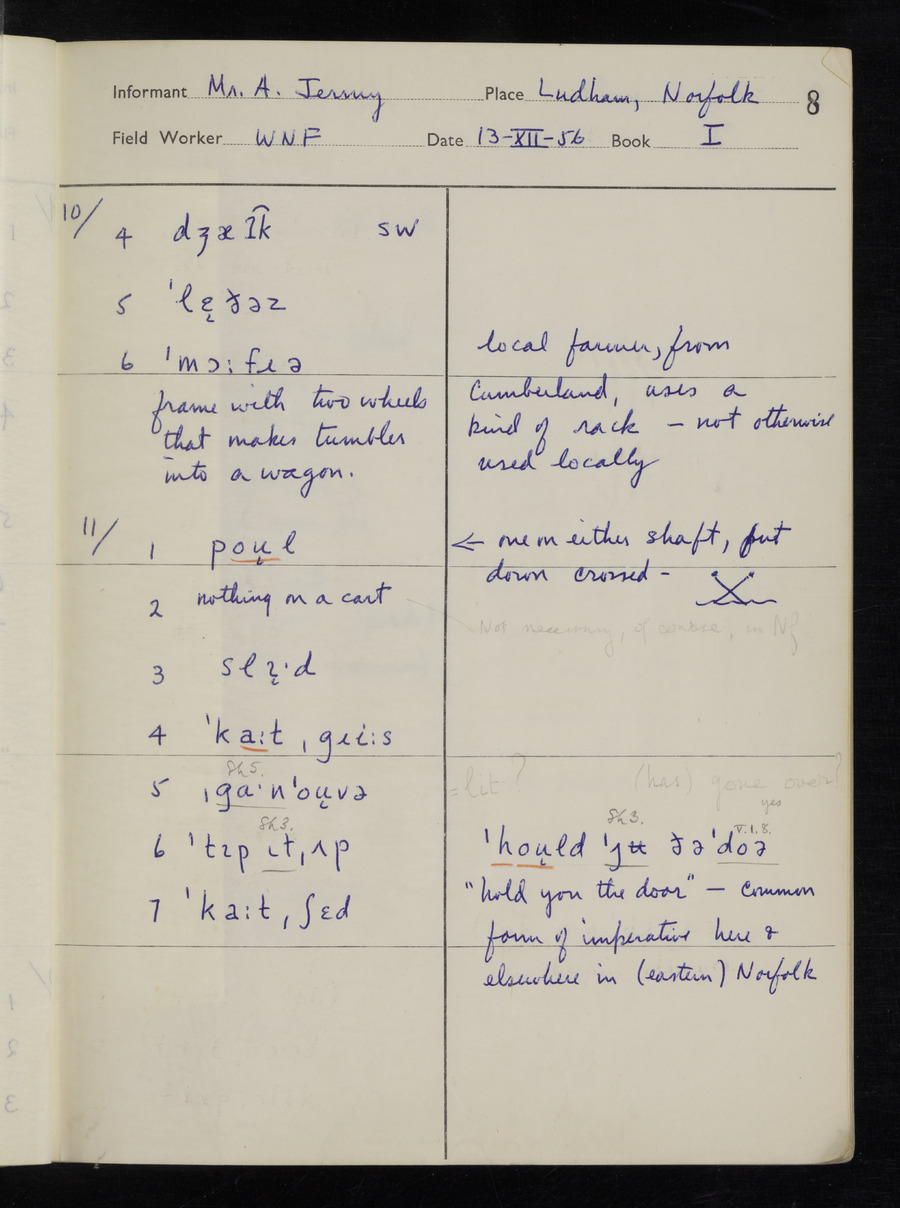 Informant Mr. A. Jermy Place Ludham, Norfolk 8
Field Worker WNF Date 13-XII-56 Book I
10/ 4 dʒæɪk sw
5 ˈlɛ̨ðəz
6 ˈmɔːfɪə
frame with two wheels
that makes tumbler
into a wagon.
local farmer, from
Cumberland, uses a
kind of rack – not otherwise
used locally
11/ 1 poʉ̨l
← one on either shaft, put
down crossed –
2 nothing on a cart
Not necessary, of course, in Nf
3 slɪ̨·d
4 ˈkaːt ˌgɪiːs
Sh 5.
5 ˌgaˑnˈoʉ̨və
= lit? (has) gone over?
yes
Sh 3.
6 ˈtɪp ɪtˌʌp
7 ˈkaːtˌʃɛd
Sh 3. V.1.8.
ˈhoʉ̨ld ˈjʉ ðəˈdoə
"hold you the door" – common
form of imperative here &
elsewhere in (eastern) Norfolk